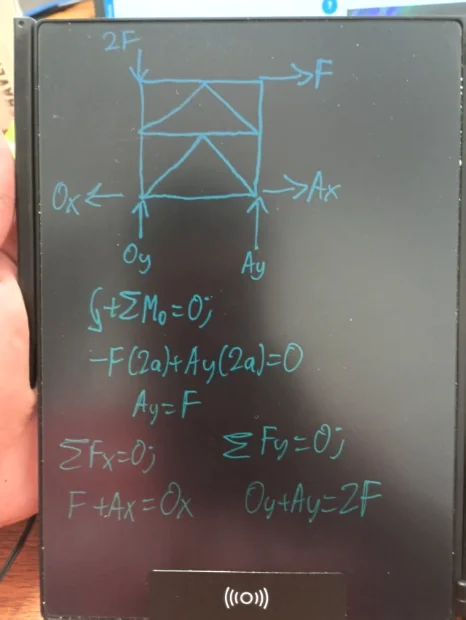 2F
F
Ox
Ax
Oy
Ay
↺+ΣMo=0;
-F(2a)+Ay(2a)=0
Ay=F
ΣFx=0; ΣFy=0;
F+Ax=Ox Oy+Ay=2F